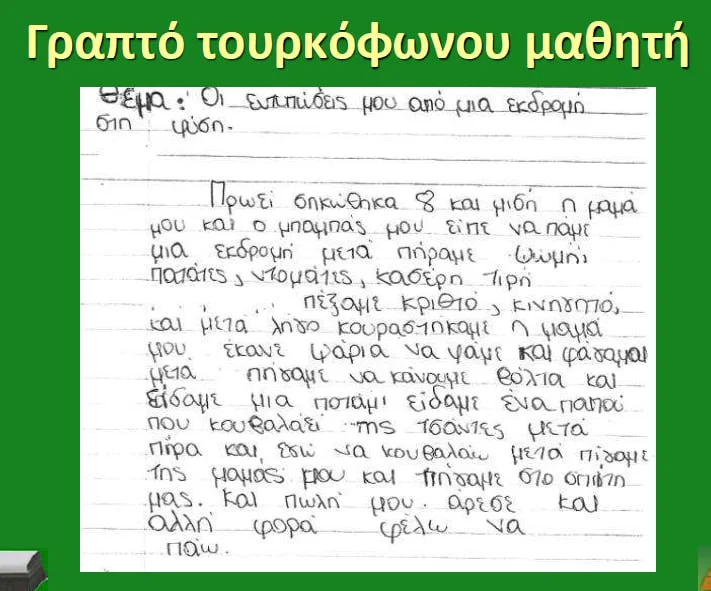 Γραπτό τουρκόφωνου μαθητή
Θέμα: Οι εντιπώδεις μου από μια εκδρομή
στη φύση.
Πρωεί σηκώθηκα 8 και μισή η μαμά
μου και ο μπαμπάς μου είπε να πάμε
μια εκδρομή μετά πήραμε ψωμή,
πατάτες, ντομάτες, κασέρη τιρή
πέζαμε κριθτό, κινηγητό,
και μετα ληγο κουραστηκαμε η μαμά
μου έκανε ψάρια να φάμε και φάγαμαι
μετα πήγαμε να κάνουμε βόλτα και
είδαμε μια ποτάμι είδαμε ένα παπού
που κουβαλάει της τσάντες μετά
πίρα και εγώ να κουβαλάω μετά πίγαμε
της μαμάς μου και πήγαμε στο σπίτη
μας. και πωλή μου άρεσε και
αλλη φορά φέλω να
πάω.